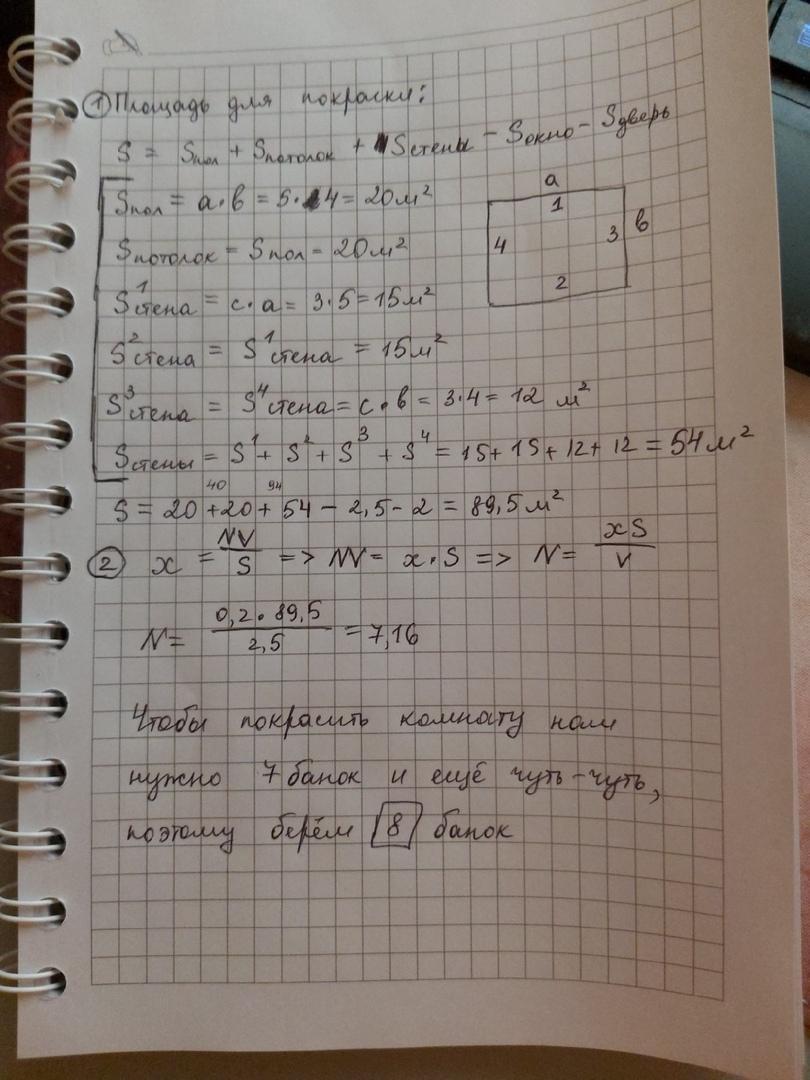 ① Площадь для покраски:
S = Sпол + Sпотолок + Sстены - Sокно - Sдверь
Sпол = a·b = 5·4 = 20м²
Sпотолок = Sпол = 20м²
S¹стена = c·a = 3·5 = 15м²
S²стена = S¹стена = 15м²
S³стена = S⁴стена = c·b = 3·4 = 12 м²
Sстены = S¹ + S² + S³ + S⁴ = 15 + 15 + 12 + 12 = 54м²
40 94
S = 20 + 20 + 54 - 2,5 - 2 = 89,5м²
a
1
4 3 b
2
② x = NV/S => NV = x·S => N = xS/V
N = 0,2·89,5/2,5 = 7,16
Чтобы покрасить комнату нам
нужно 7 банок и ещё чуть-чуть,
поэтому берём 8 банок